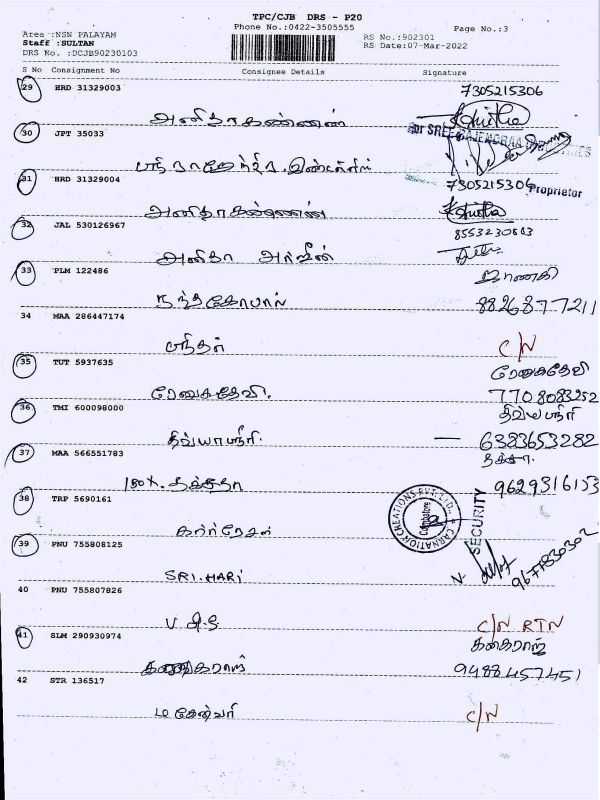 TPC/CJB DRS - P20
Phone No.:0422-3505555
Page No.:3
Area :NSN PALAYAM
Staff :SULTAN
DRS No. :DCJB90230103
RS No.:902301
RS Date:07-Mar-2022
S No Consignment No Consignee Details Signature
29 HRD 31329003 7305215306
அனிதாகண்ணன்
30 JPT 35033
31 HRD 31329004 7305215306 Proprietor
அனிதாகண்ணன்
32 JAL 530126967
அனிதா அர்வின்
33 PLM 122486 ஜானகி
நந்தகோபால் 8826877211
34 MAA 286447174
C/N
35 TUT 5937635 ரேணுகாதேவி
ரேணுகாதேவி. 7708083252
36 TMI 600098000 திவ்யஸ்ரீ
திவ்யாஸ்ரீ. — 6383653282
37 MAA 566551783
9629316153
38 TRP 5690161
CARNATION CREATIONS PVT. LTD.
Coimbatore
SECURITY
39 PNU 755808125
SRI.HARI
40 PNU 755807826
C/N RTN
41 SLM 290930974 கனகராஜ்
கனகராஜ் 9488457451
42 STR 136517
மகேஸ்வரி C/N